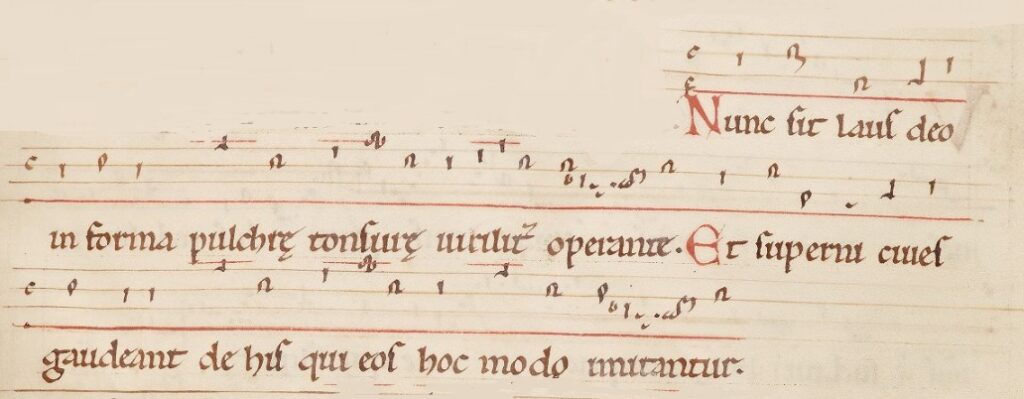 Nunc sit laus deo
in forma pulchrę tonsurę uirilit̄ operante. Et superni ciues
gaudeant de his qui eos hoc modo imitantur.